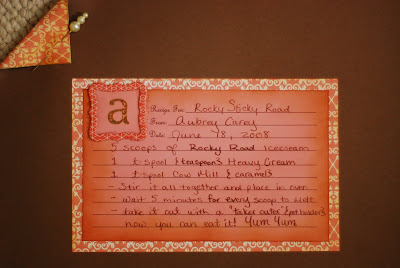 a
Recipe For: Rocky Sticky Road
From: Aubrey Carey
Date: June 18, 2008
5 scoops of Rocky Road Icecream
1 tspool teaspoons Heavy Cream
1 tspool Cow Mill & caramels
- Stir it all together and place in oven
- wait 5 minutes for every scoop to melt
- take it out with a "taker outer" pot holders
now you can eat it! Yum Yum